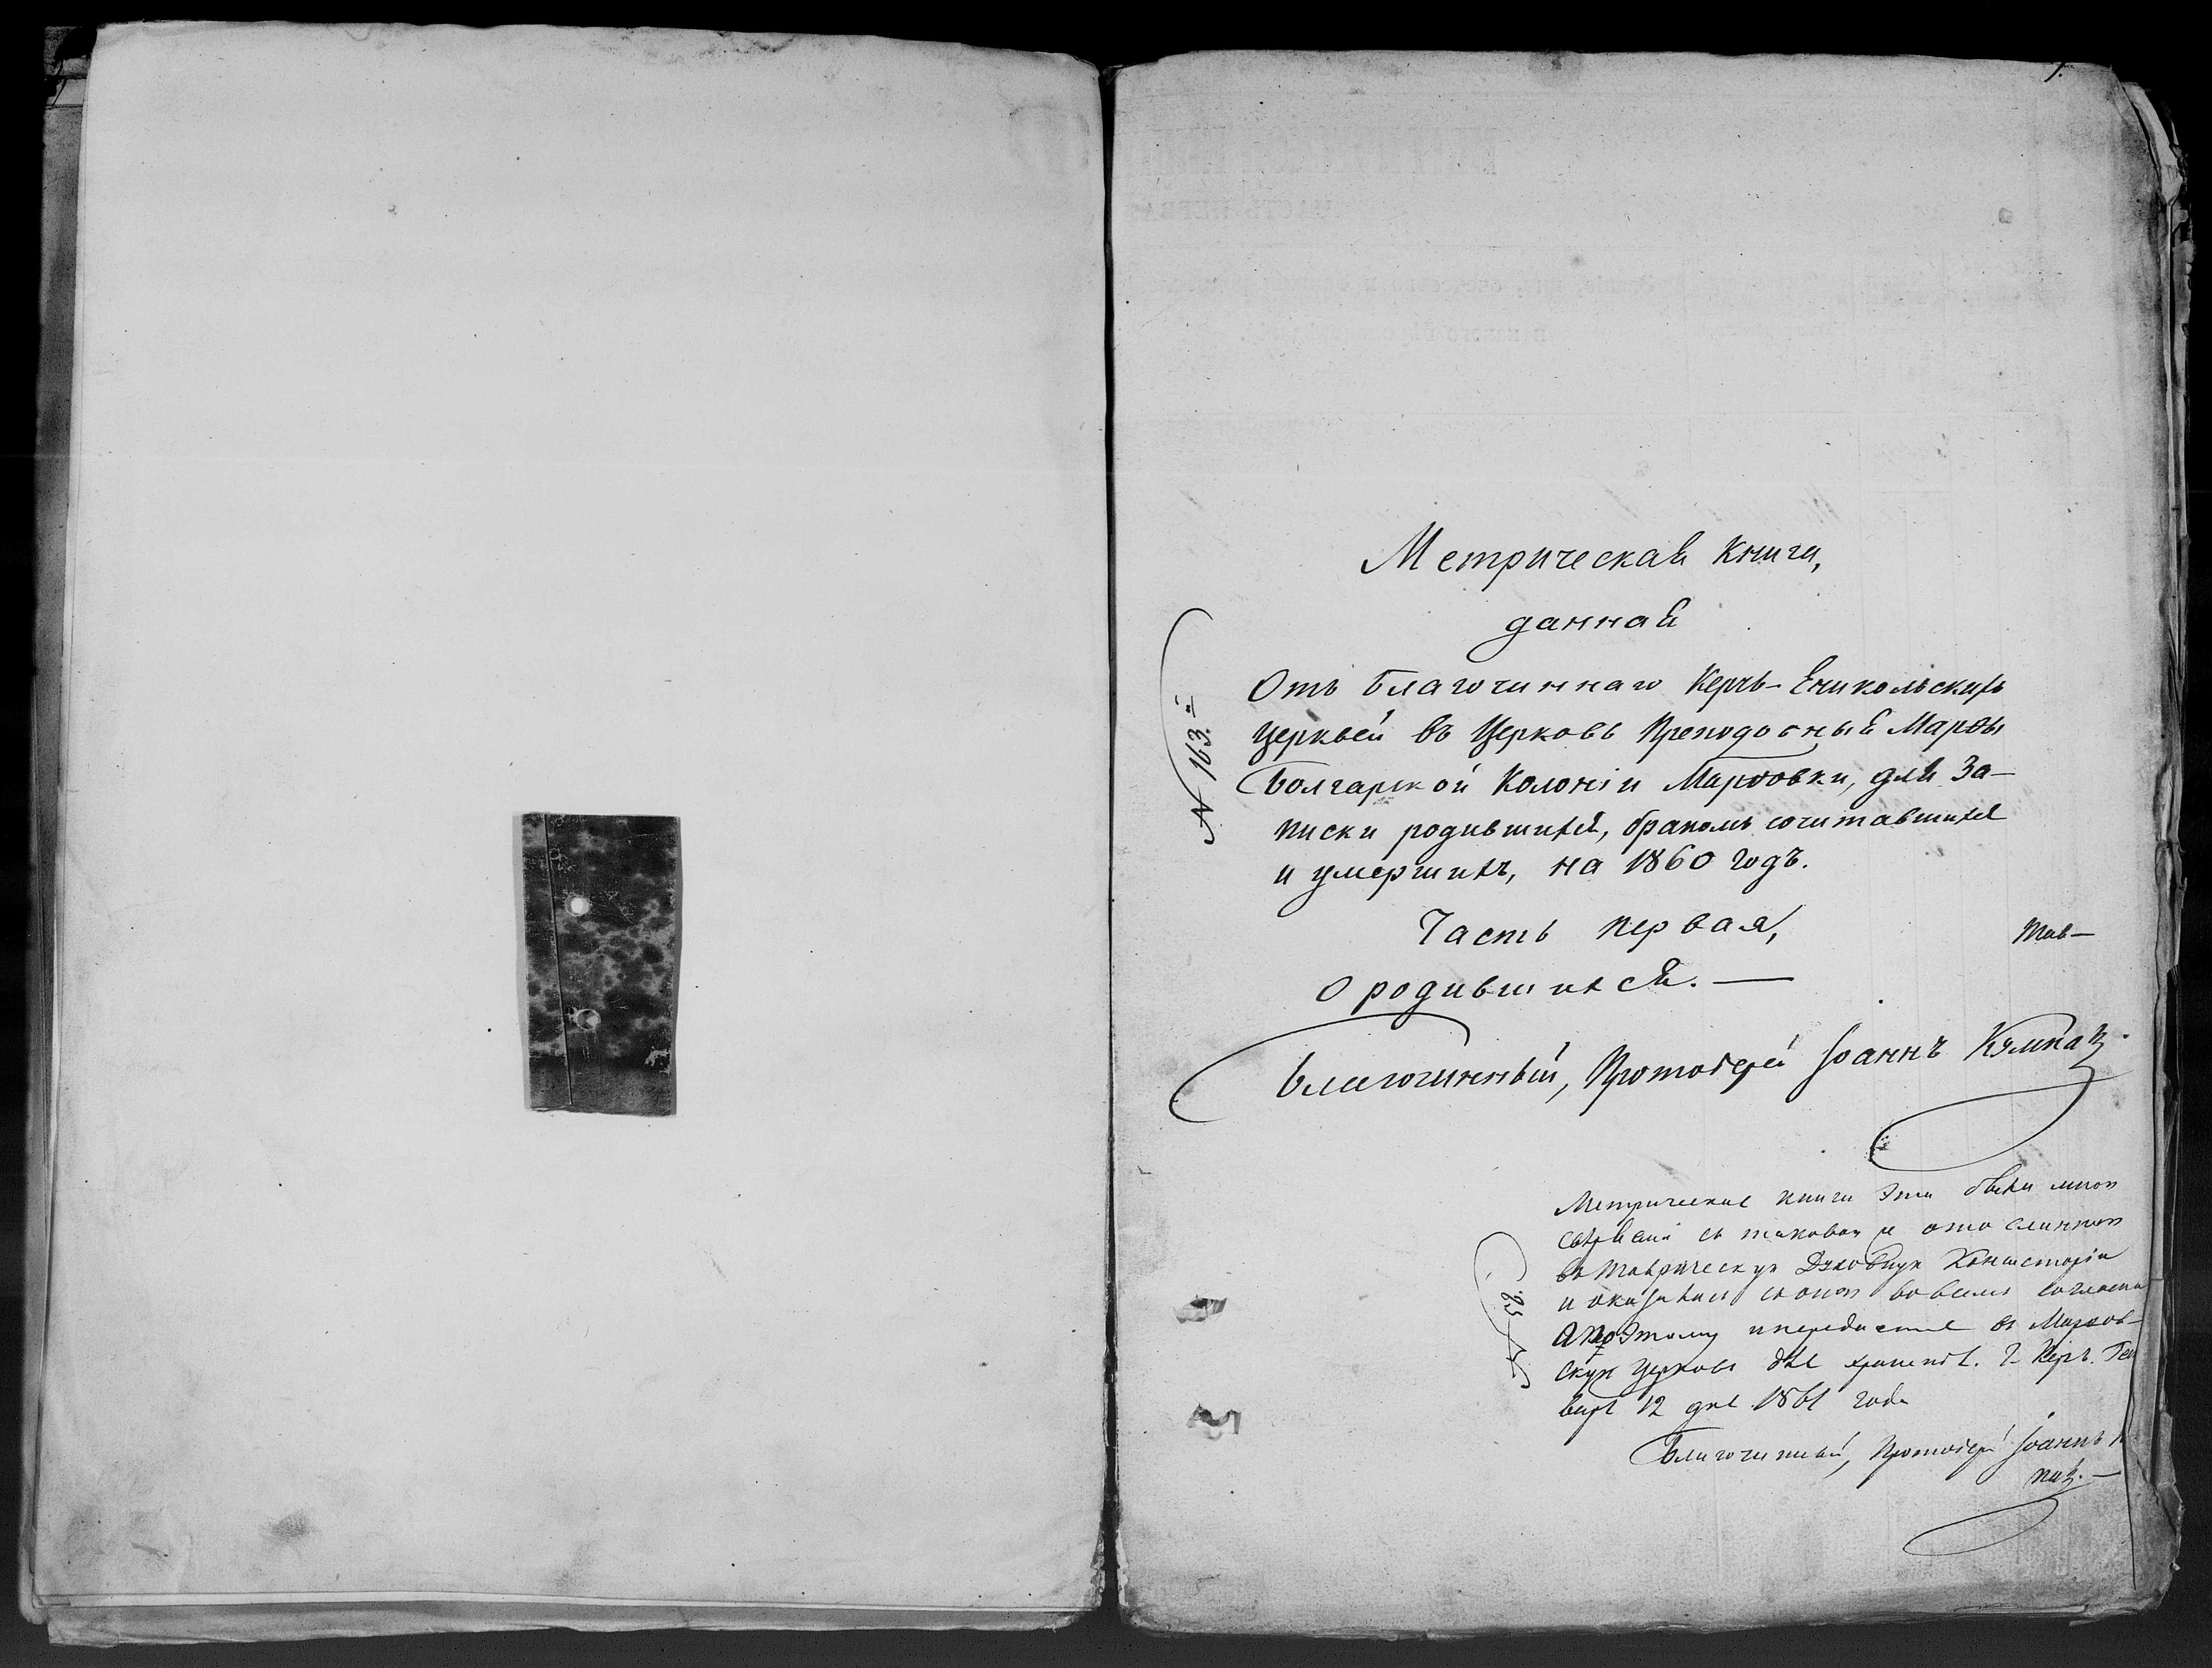 1.
Метрическая книга,
данная
Отъ Благочиннаго Керчь-Еникольскихъ
Церквей въ Церковь Преподобныя Марѳы
Болгарской Колоніи Марѳовки, для За-
писки родившихся, бракомъ сочитавшихся
и умершихъ, на 1860 годъ.
№ 163.й
Часть первая,
Тав-
О родившихся. —
Благочинный, Протоіерей Іоаннъ
Метрическія книги эти были мною
съ таковою отосланною
въ Таврическую Духовную Консисторію
и оказались во всемъ согласны
а поэтому въ Марѳов-
скую Церковь для храненія. Г. Керчь. Ген
варя 12 дня 1861 года
№ 23.
Благочинный, Протоіерей Іоаннъ